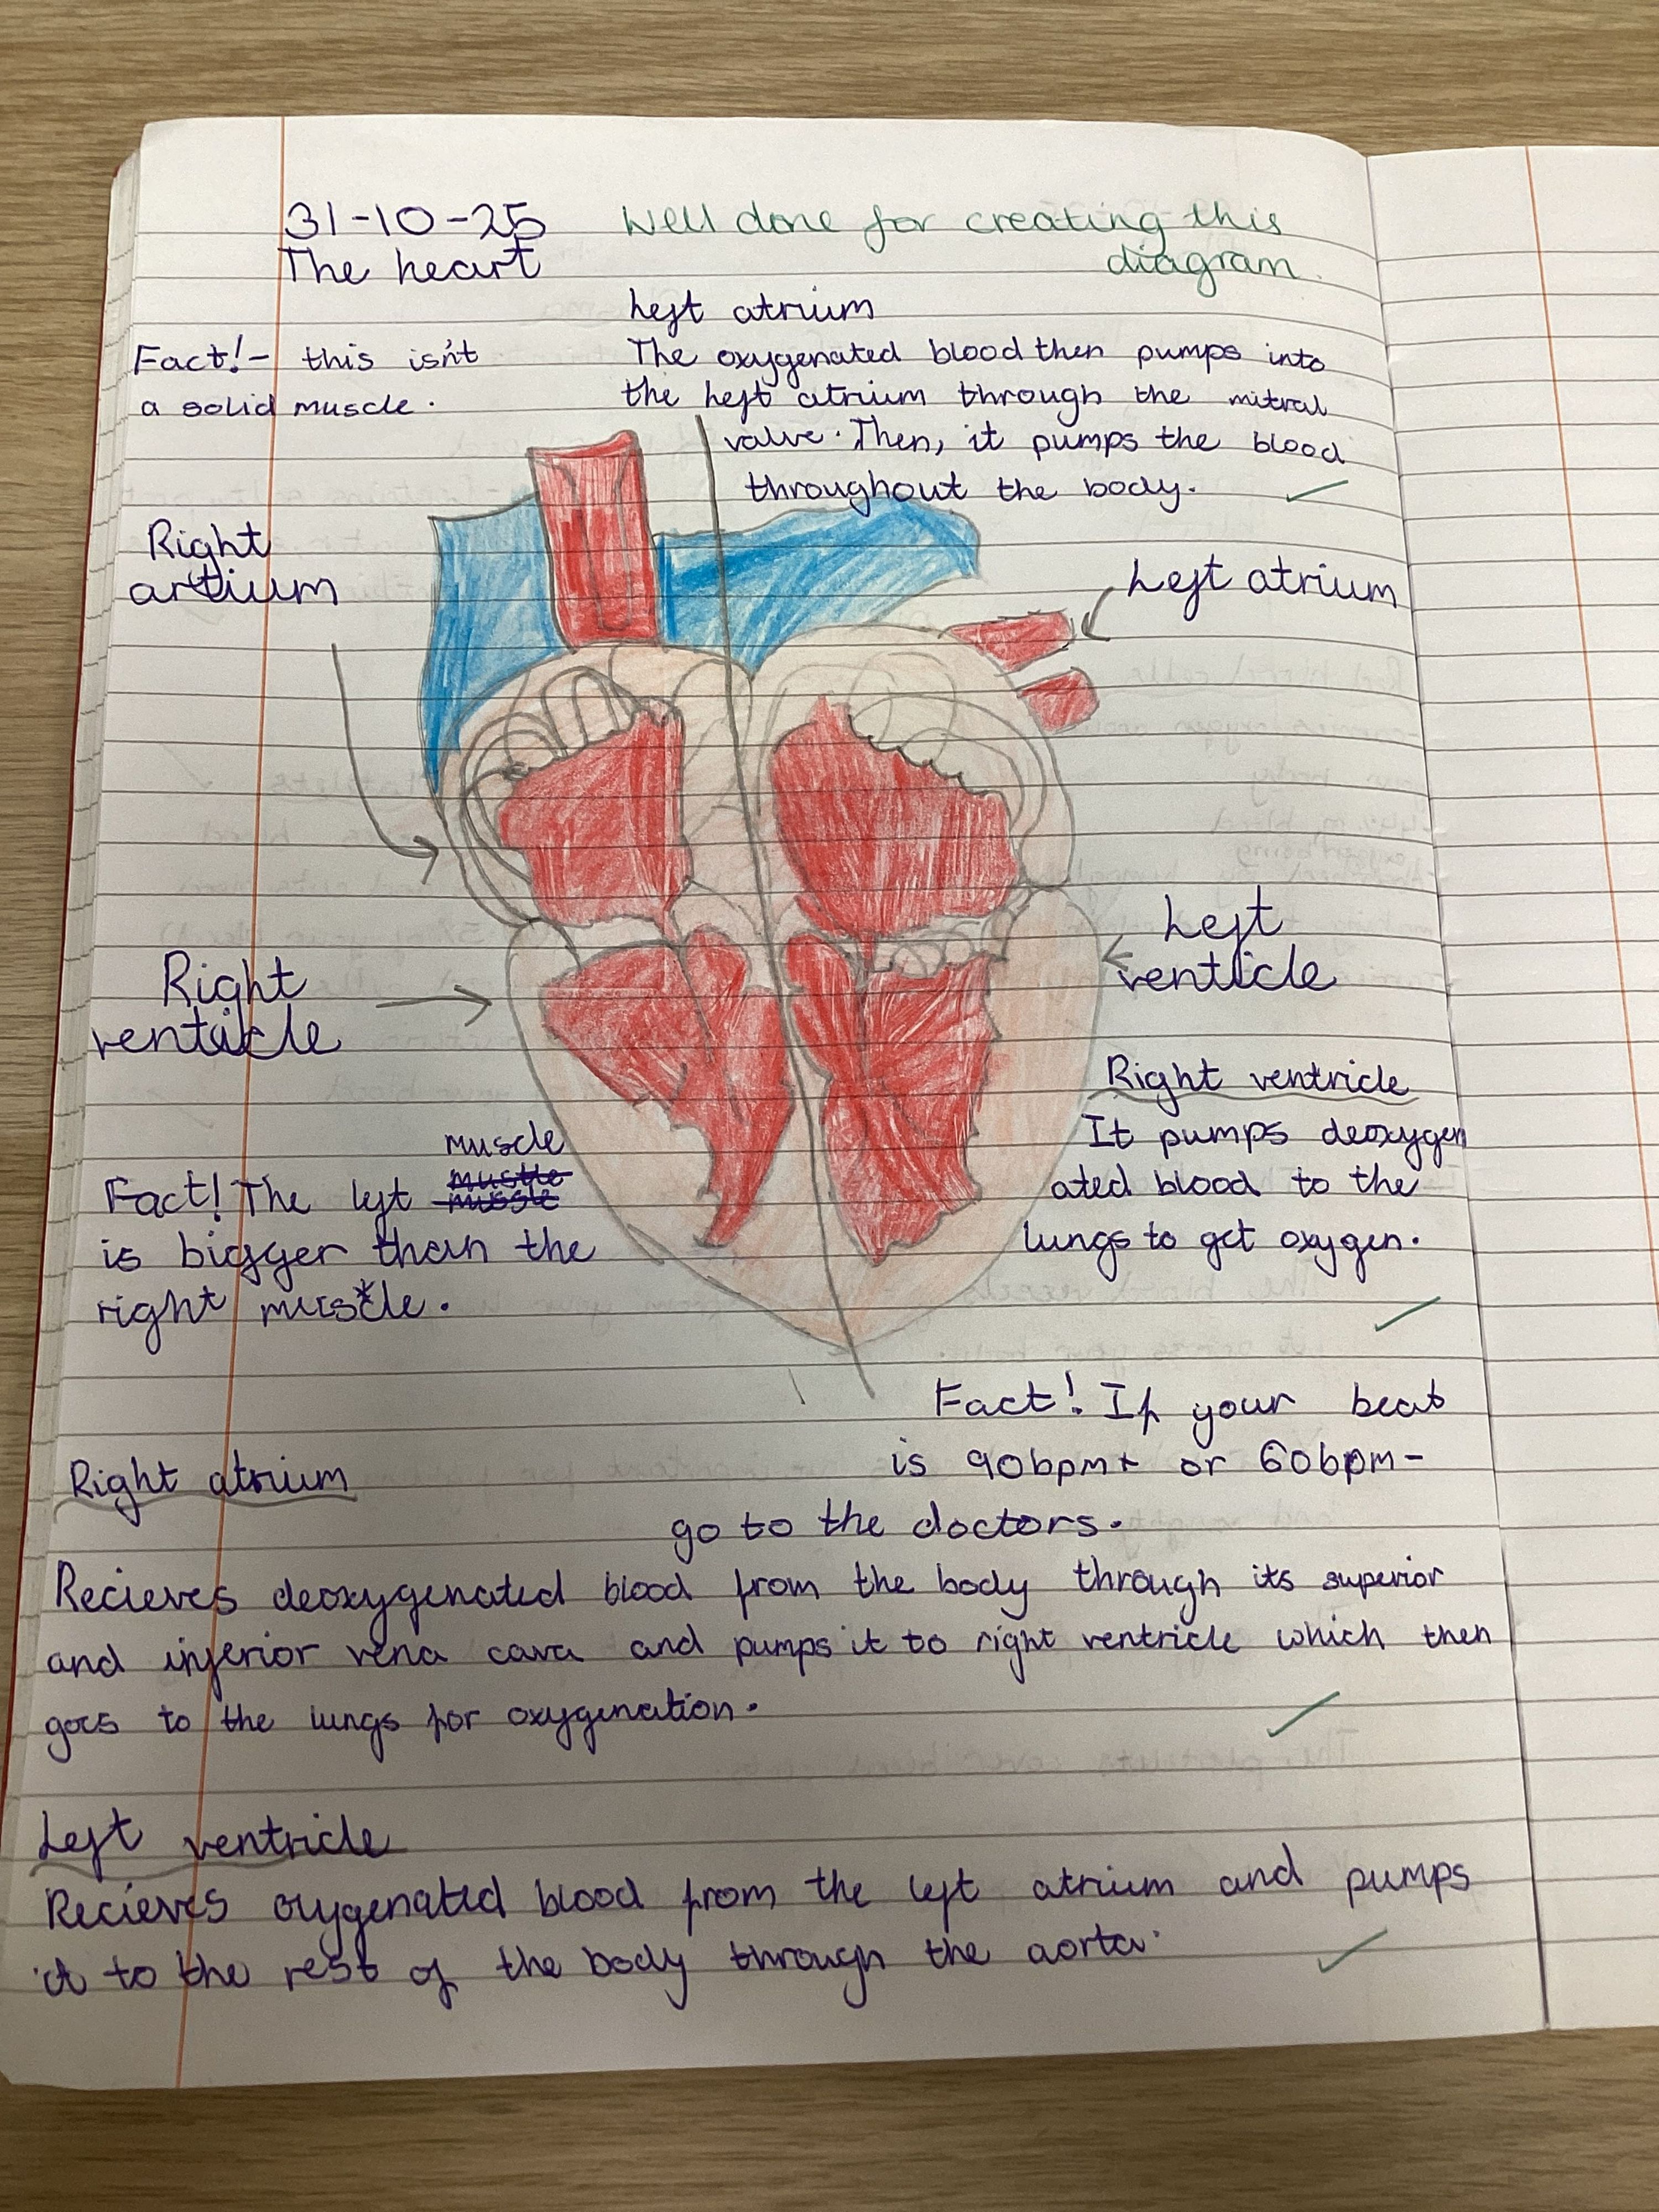 31-10-25
The heart
Well done for creating this
diagram.
Fact!- this isn't
a solid muscle.
Left atrium
The oxygenated blood then pumps into
the left atrium through the mitral
valve. Then, it pumps the blood
throughout the body.
Right
artium
Left atrium
Left
ventricle
Right
ventricle
Right ventricle
It pumps deoxygen
ated blood to the
lungs to get oxygen.
muscle
Fact! The left mustle
mussle
is bigger than the
right mus*cle.
Fact! If your beat
is 90bpm+ or 60bpm-
go to the doctors.
Right atrium
Recieves deoxygenated blood from the body through its superior
and inferior vena cava and pumps it to right ventricle which then
goes to the lungs for oxygenation.
Left ventricle
Recieves oxygenated blood from the left atrium and pumps
it to the rest of the body through the aorta.